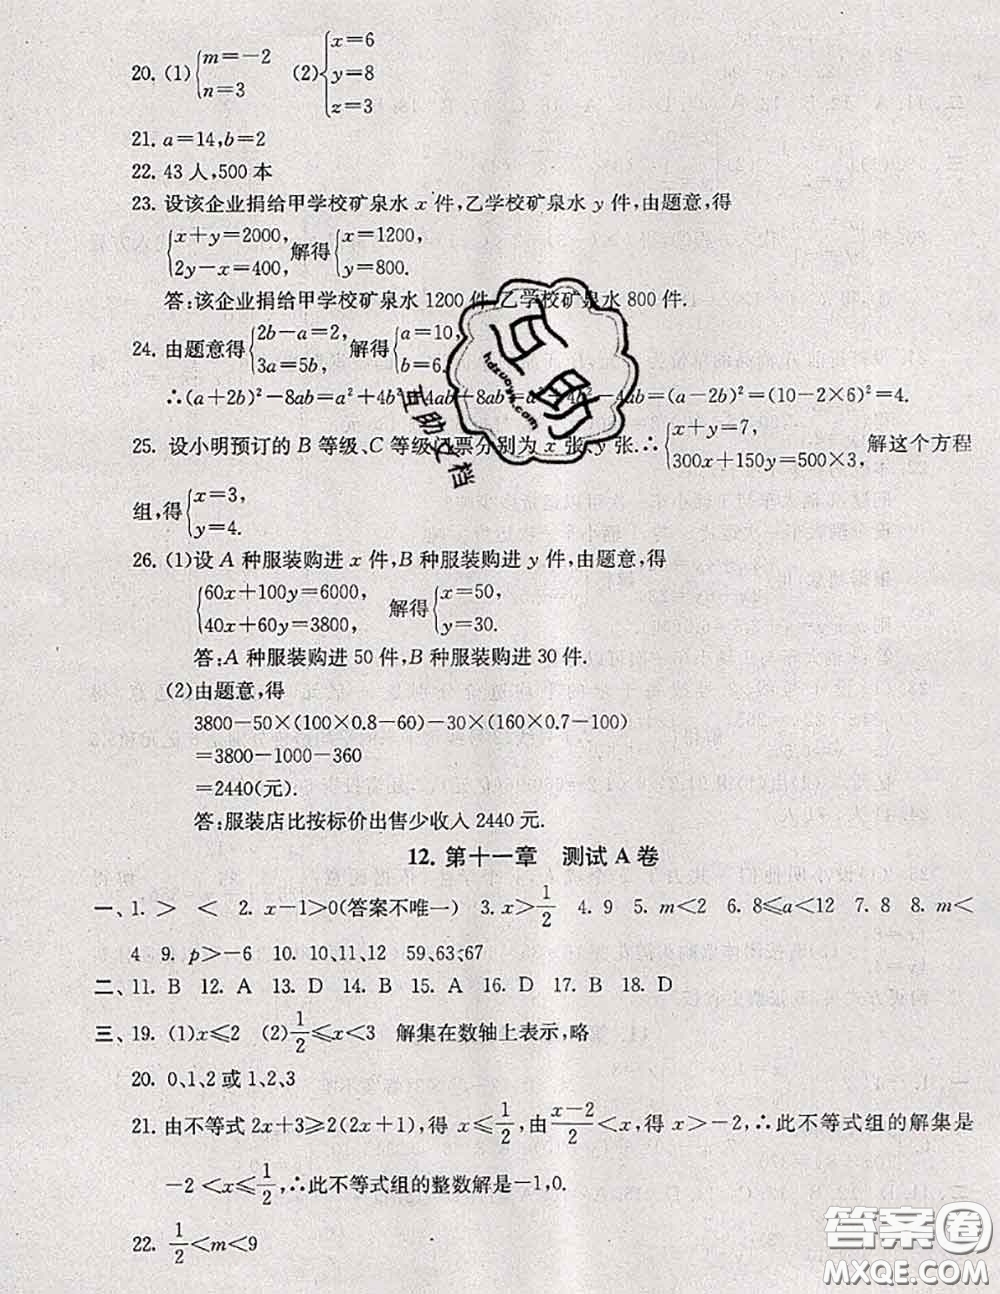 20. (1){m=-2 (2){x=6
n=3 y=8
z=3
21. a=14,b=2
22. 43人,500本
23. 设该企业捐给甲学校矿泉水x件,乙学校矿泉水y件,由题意,得
{x+y=2000, 解得{x=1200,
2y-x=400, y=800.
答:该企业捐给甲学校矿泉水1200件,乙学校矿泉水800件.
24. 由题意得{2b-a=2, 解得{a=10,
3a=5b, b=6.
∴(a+2b)²-8ab=a²+4b²+4ab-8ab=a²+4b²-4ab=(a-2b)²=(10-2×6)²=4.
25. 设小明预订的B等级、C等级门票分别为x张、y张.∴{x+y=7, 解这个方程
300x+150y=500×3,
组,得{x=3,
y=4.
26. (1)设A种服装购进x件,B种服装购进y件,由题意,得
{60x+100y=6000, 解得{x=50,
40x+60y=3800, y=30.
答:A种服装购进50件,B种服装购进30件.
(2)由题意,得
3800-50×(100×0.8-60)-30×(160×0.7-100)
=3800-1000-360
=2440(元).
答:服装店比按标价出售少收入2440元.
12. 第十一章 测试A卷
一、1. > < 2. x-1>0(答案不唯一) 3. x>1/2 4. 9 5. m<2 6. 8≤a<12 7. 8 8. m<
4 9. p>-6 10. 10,11,12 59,63,67
二、11. B 12. A 13. D 14. B 15. A 16. D 17. B 18. D
三、19. (1)x≤2 (2)1/2≤x<3 解集在数轴上表示,略
20. 0,1,2或1,2,3
21. 由不等式2x+3≥2(2x+1),得x≤1/2,由(x-2)/2<x,得x>-2,∴此不等式组的解集是
-2<x≤1/2,∴此不等式组的整数解是-1,0.
22. 1/2<m<9
互助
hdzuoye.com
互助文档
答案圈
MXQE.COM